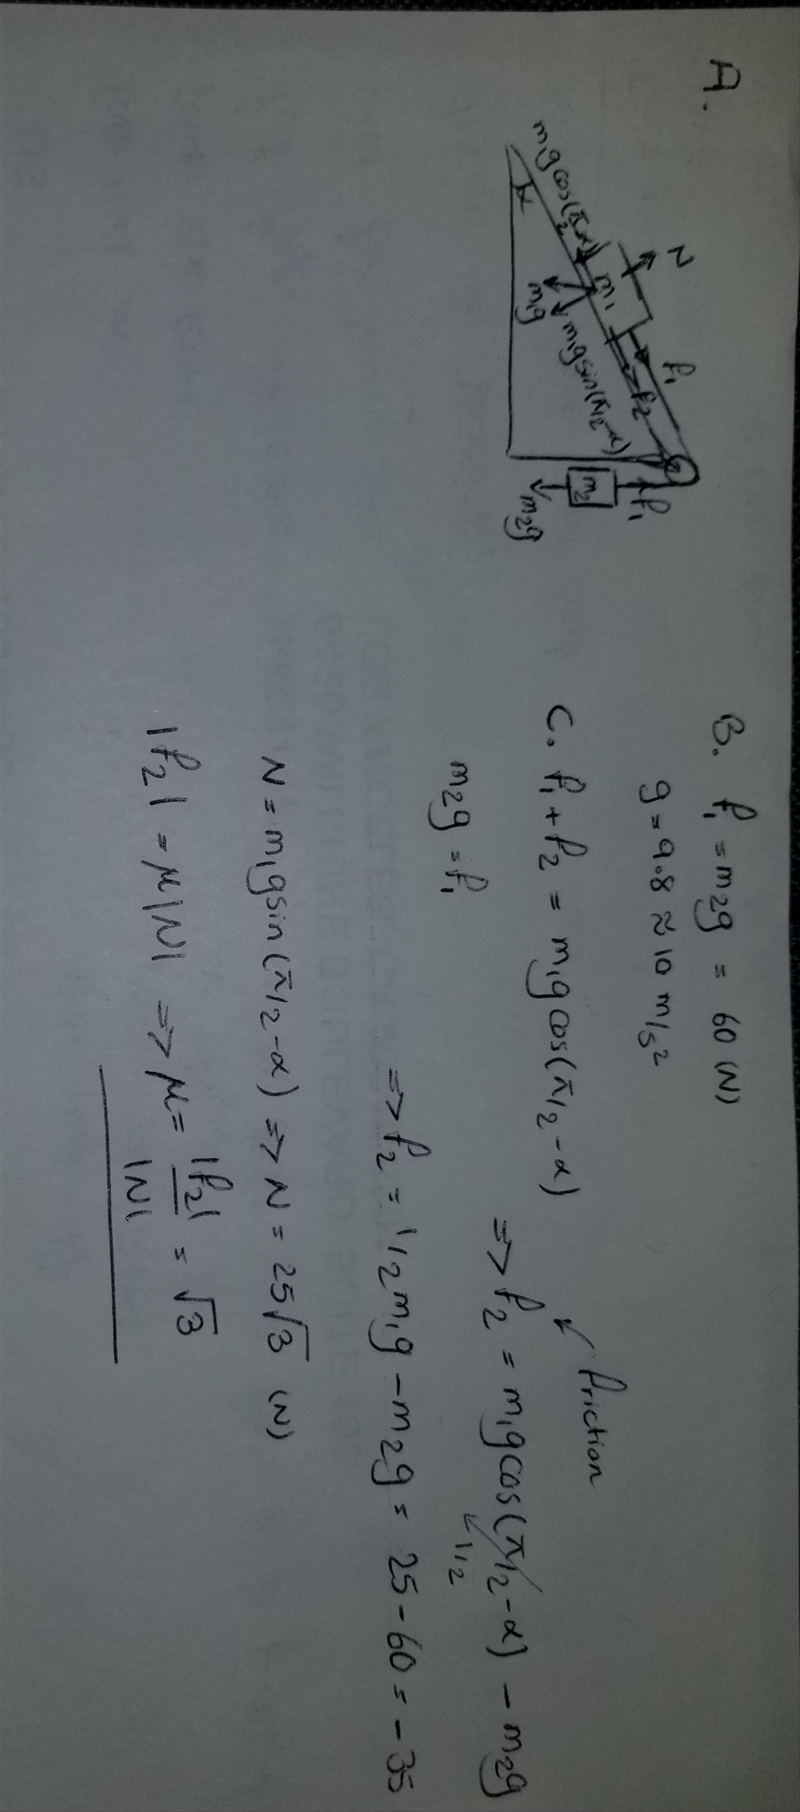 A.
N
f₁
f₂
m₁
m₁gcos(π/2-α)
α
m₁g
m₁gsin(π/2-α)
f₁
m₂
m₂g
B. f₁ = m₂g = 60 (N)
g = 9.8 ≈ 10 m/s²
C. f₁ + f₂ = m₁gcos(π/2-α)
friction
=> f₂ = m₁gcos(π/2-α) - m₂g
1/2
m₂g = f₁
=> f₂ = 1/2m₁g - m₂g = 25 - 60 = -35
N = m₁gsin(π/2-α) => N = 25√3 (N)
|f₂| = μ|N| => μ = |f₂|/|N| = √3